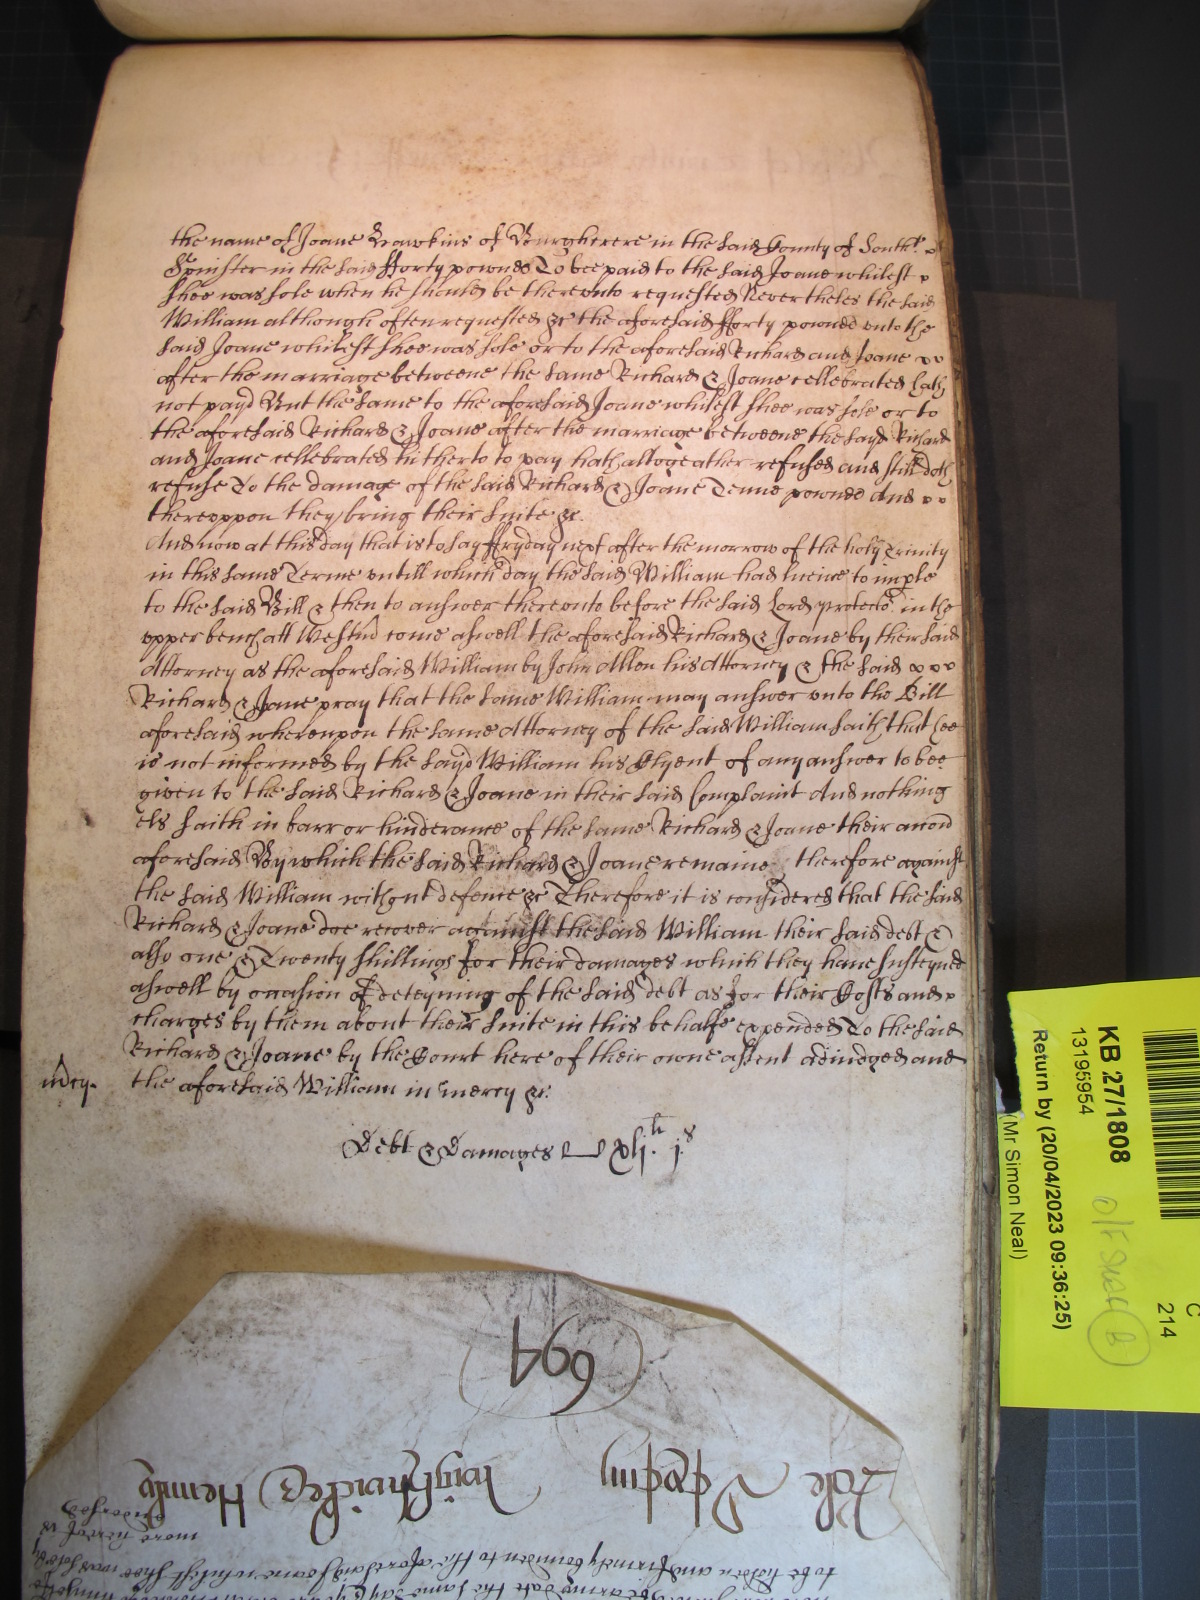 the name of Joane Hawkins of Burghcrere in the said County of Southt.
Spinster in the said fforty pownds To bee paid to the said Joane whilest
shee was sole when he should be therevnto requested Nevertheles the said
William although often requested &c the aforesaid fforty pownds vnto the
said Joane whilest shee was sole or to the aforesaid Richard and Joane
after the marriage betweene the same Richard & Joane cellebrated hath
not payd But the same to the aforesaid Joane whilest shee was sole or to
the aforesaid Richard & Joane after the marriage betweene the sayd Richard
and Joane cellebrated hitherto to pay hath altogeather refused and still doth
refuse To the damage of the said Richard & Joane Tenne pownds And
therevppon they bring their suite &c.
And now at this day that is to say ffryday next after the morrow of the holy Trinity
in this same Terme vntill which day the said William had licence to imple
to the said Bill & then to answer therevnto before the said Lord Protector in the
vpper bench att Westm come aswell the aforesaid Richard & Joane by their said
Attorney as the aforesaid William by John Allen his Attorney & the said
Richard & Joane pray that the same William may answer vnto the Bill
aforesaid wherevpon the same Attorney of the said William saith that hee
is not informed by the sayd William his Clyent of any answer to bee
given to the said Richard & Joane in their said Complaint And nothing
els saith in barr or hinderance of the same Richard & Joane their accon
aforesaid By which the said Richard & Joane remaine therefore against
the said William without defence &c Therefore it is considered that the said
Richard & Joane doe recover against the said William their said debt &
also one & Twenty shillings for their damages which they have susteyned
aswell by occasion of deteyning of the said debt as for their Costs and
charges by them about their suite in this behalfe expended To the said
Richard & Joane by the Court here of their owne assent adiudged and
mcy. the aforesaid William in mercy &c.
Debt & Damages xlj.li j.s
694
Hemley
more
to be holden and firmely bounden to the aforesaid Joane whilest shee was sole
KB 27/1808
13195954
Return by (20/04/2023 09:36:25)
(Mr Simon Neal)
C
214